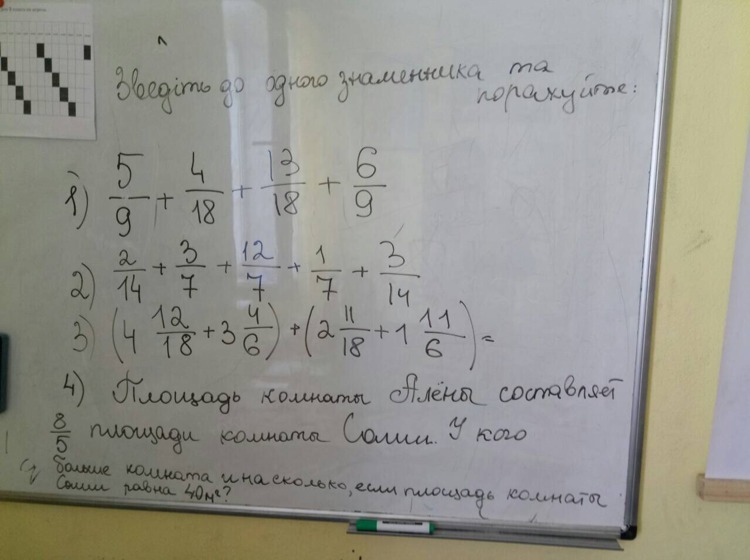 Зведіть до одного знаменника та
порахуйте:
1) 5/9 + 4/18 + 13/18 + 6/9
2) 2/14 + 3/7 + 12/7 + 1/7 + 3/14
3) (4 12/18 + 3 4/6) + (2 11/18 + 1 11/6) =
4) Площадь комнаты Алёны составляет
8/5 площади комнаты Сони. У кого
больше комната и на сколько, если площадь комнаты
Сони равна 40 м²?